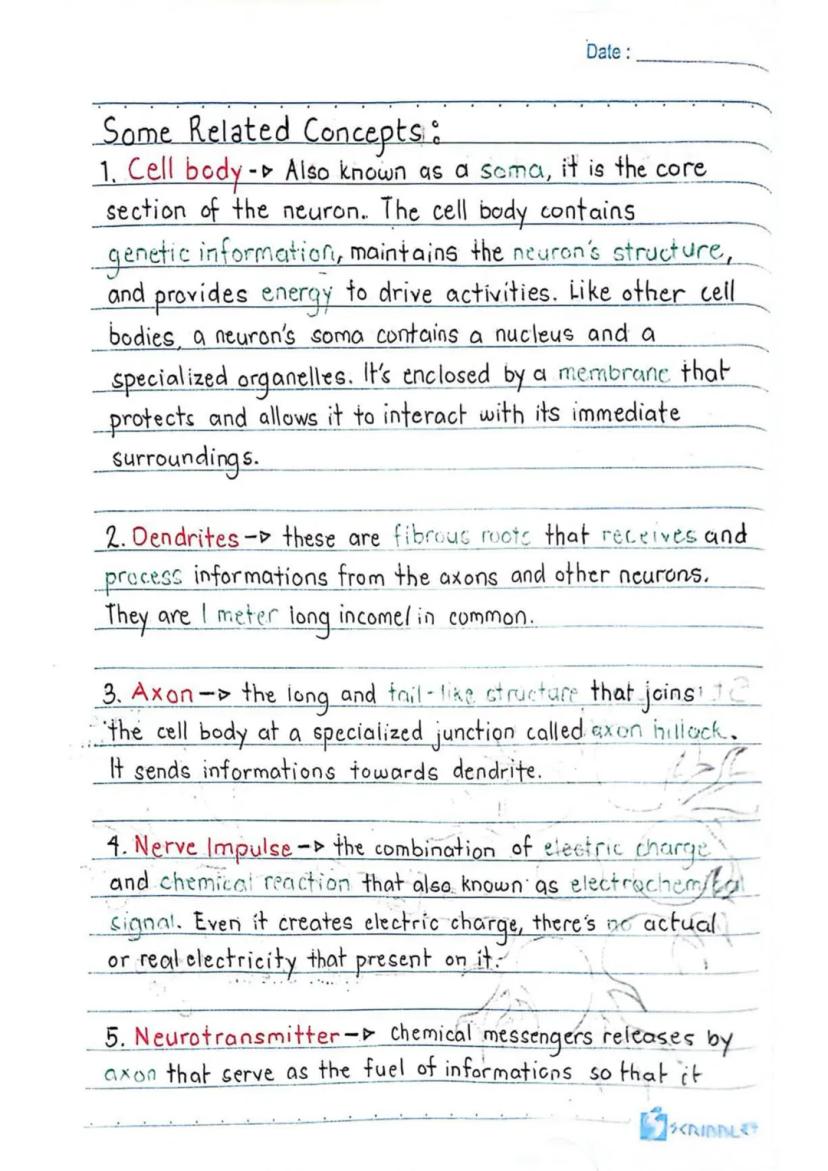 Date :
Some Related Concepts :
1. Cell body -▹ Also known as a soma, it is the core
section of the neuron. The cell body contains
genetic information, maintains the neuron's structure,
and provides energy to drive activities. Like other cell
bodies, a neuron's soma contains a nucleus and a
specialized organelles. It's enclosed by a membrane that
protects and allows it to interact with its immediate
surroundings.
2. Dendrites -▹ these are fibrous roots that receives and
process informations from the axons and other neurons.
They are 1 meter long income/in common.
3. Axon -▹ the long and tail-like structure that joins
the cell body at a specialized junction called axon hillock.
It sends informations towards dendrite.
4. Nerve Impulse -▹ the combination of electric charge
and chemical reaction that also known as electrochemical
signal. Even it creates electric charge, there's no actual
or real electricity that present on it.
5. Neurotransmitter -▹ chemical messengers releases by
axon that serve as the fuel of informations so that it